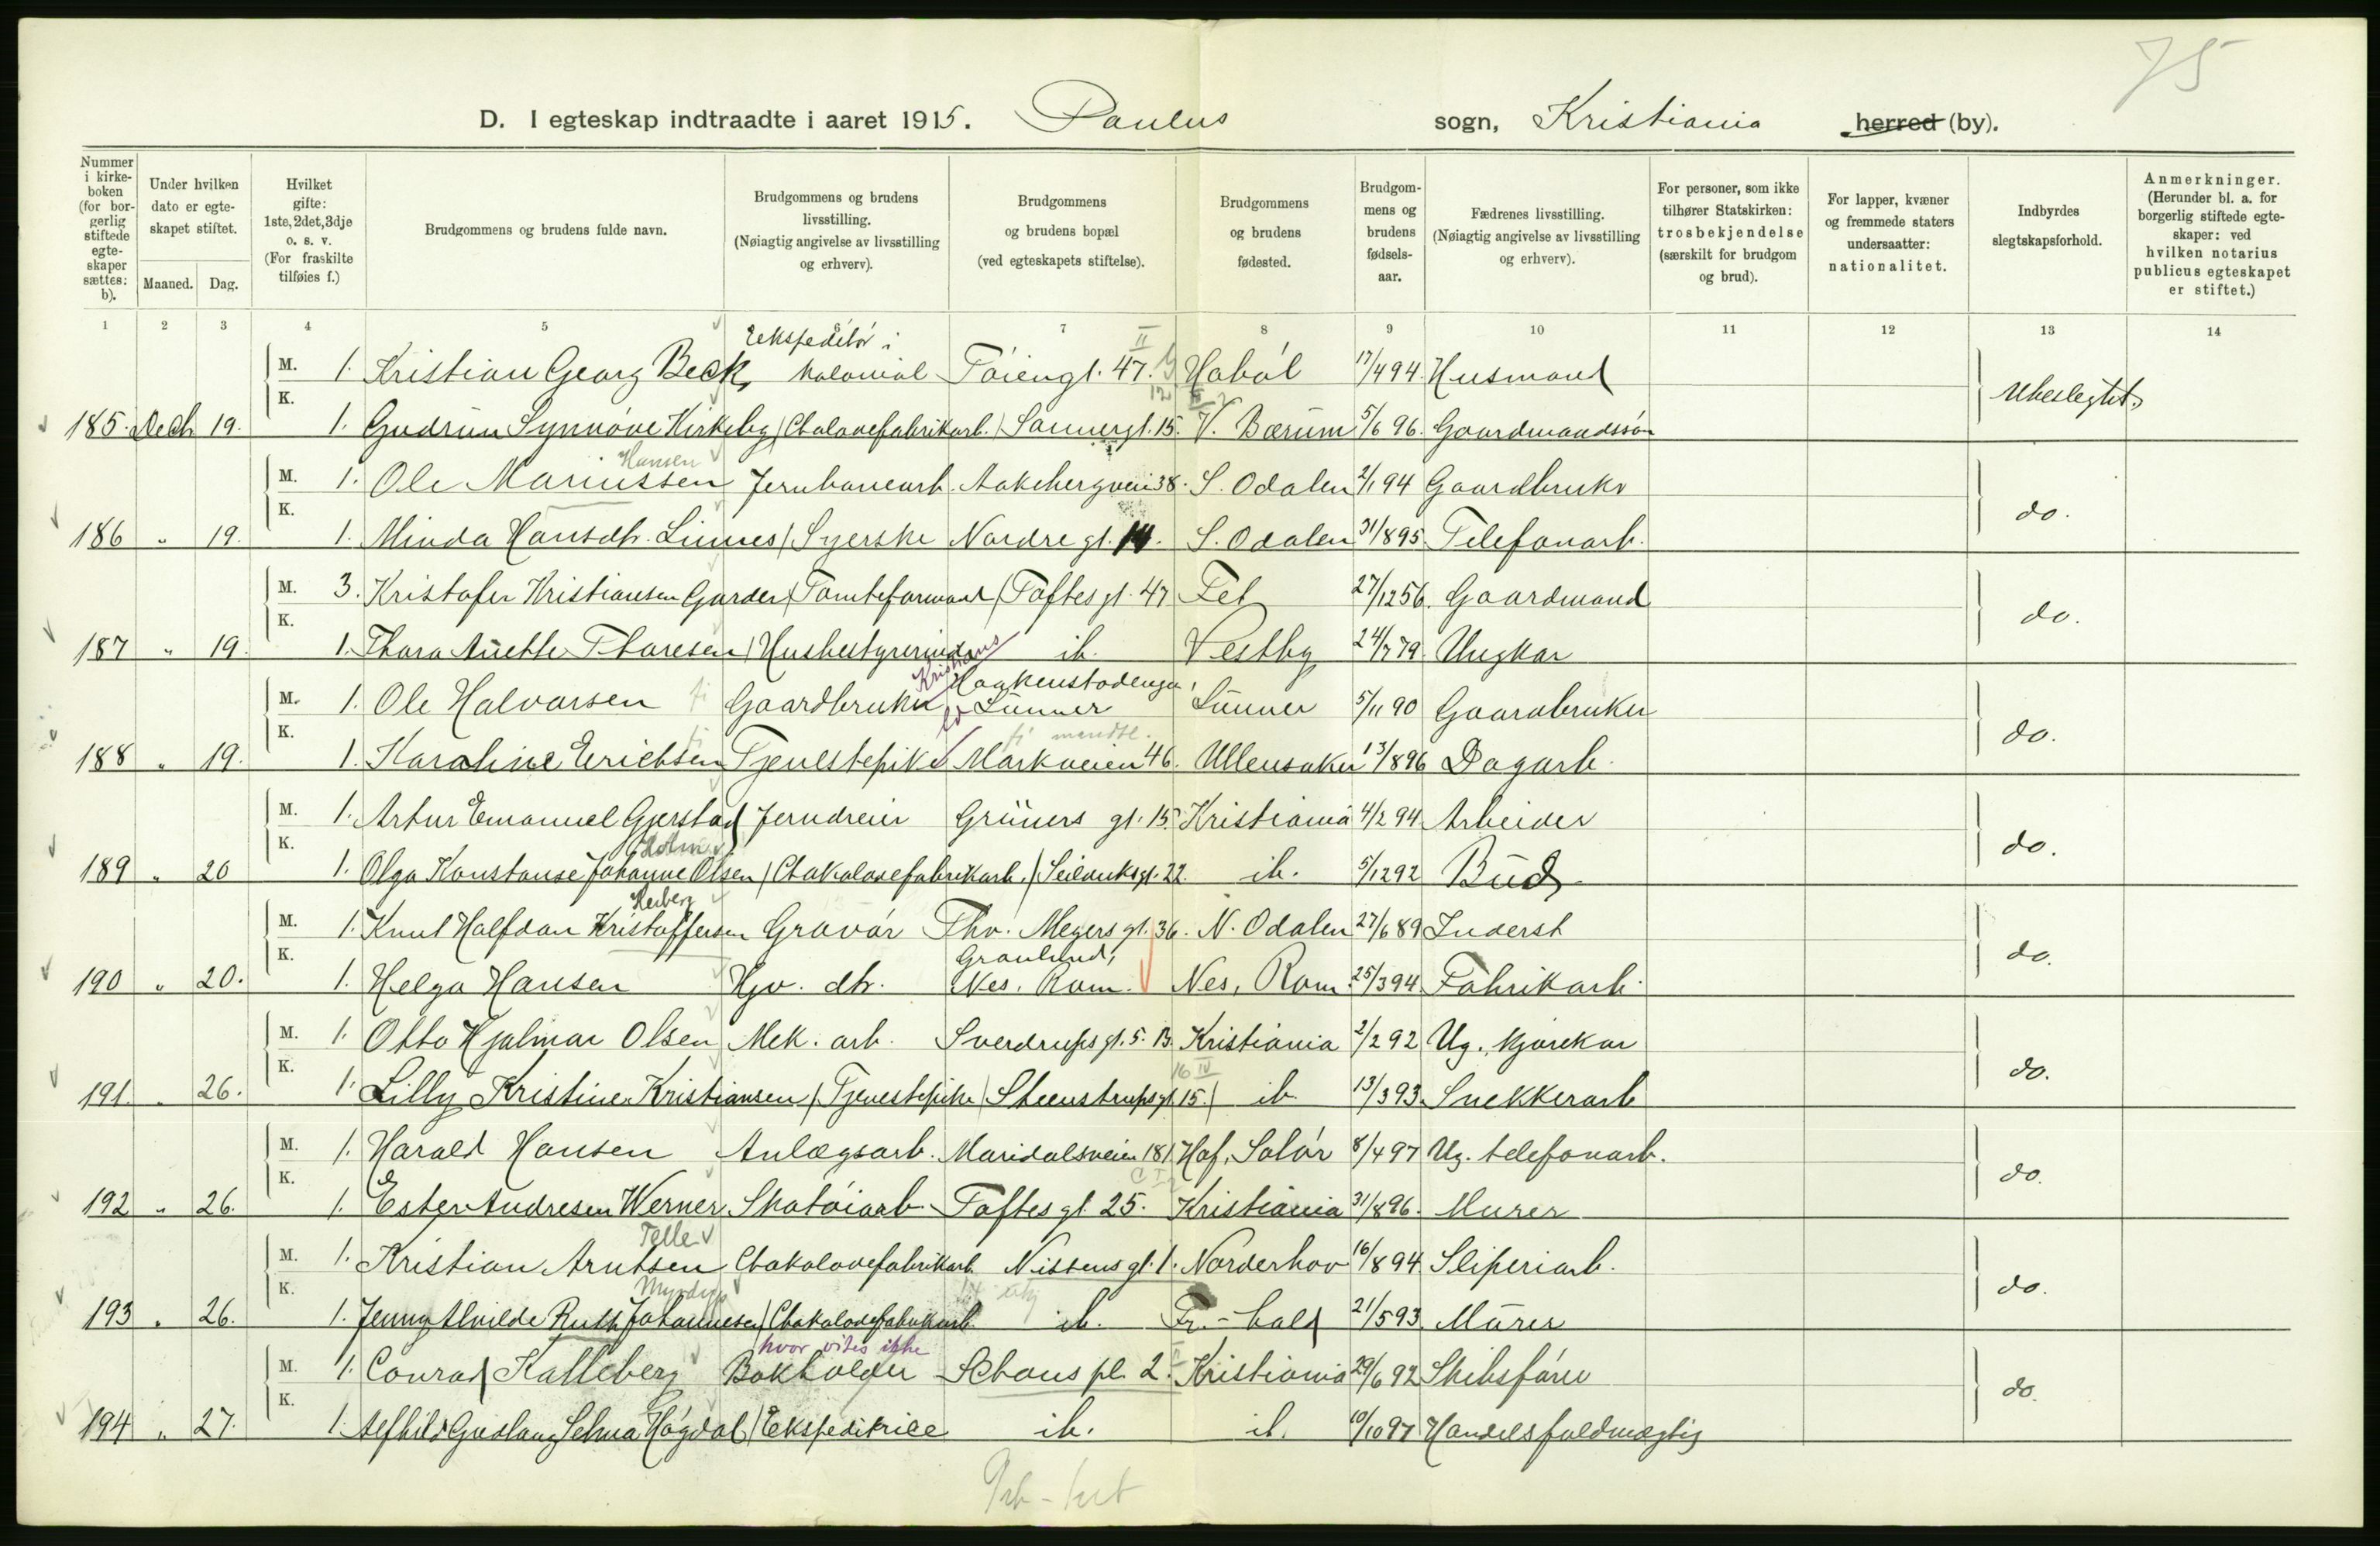 75
D. I egteskap indtraadte i aaret 1915. Paulus sogn, Kristiania herred (by).
Nummer i kirkeboken (for borgerlig stiftede egteskaper sættes: b).
Under hvilken dato er egteskapet stiftet.
Maaned. Dag.
Hvilket gifte: 1ste, 2det, 3dje o. s. v. (For fraskilte tilføies f.)
Brudgommens og brudens fulde navn.
Brudgommens og brudens livsstilling. (Nøiagtig angivelse av livsstilling og erhverv).
Brudgommens og brudens bopæl (ved egteskapets stiftelse).
Brudgommens og brudens fødested.
Brudgommens og brudens fødselsaar.
Fædrenes livsstilling. (Nøiagtig angivelse av livsstilling og erhverv).
For personer, som ikke tilhører Statskirken: trosbekjendelse (særskilt for brudgom og brud).
For lapper, kvæner og fremmede staters undersaatter: nationalitet.
Indbyrdes slegtskapsforhold.
Anmerkninger. (Herunder bl. a. for borgerlig stiftede egteskaper: ved hvilken notarius publicus egteskapet er stiftet.)
1 2 3 4 5 6 7 8 9 10 11 12 13 14
Ekspeditör i II
M. 1. Kristian Georg Beck, kolonial Töiengt. 47. Haböl 17/4 94. Husmand
Ubeslegtet
K. 185. Decb 19. 1. Gudrun Synnöve Kirkeby Chokoladefabrikarb. Sannergt. 15. V. Bærum 5/6 96. Gaardmandssön
Hansen
M. 1. Ole Mariussen Jernbanearb. Aakebergveien 38. S. Odalen 2/1 94 Gaardbruker
do.
K. 186 " 19. 1. Minda Hansdtr. Linnes Syerske Nordre gt. 14. S. Odalen 31/8 95 Telefonarb.
M. 3. Kristofer Kristiansen Garder Tomteformand Toftes gt. 47 Fet 27/12 56. Gaardmand
do.
K. 187 " 19. 1. Thora Anette Thoresen Husbestyrerinde ib. Vestby 24/7 79. Ungkar
Kristians Haakenstadengen,
M. 1. Ole Halvorsen Gaardbruker Lunner Lunner 5/11 90 Gaardbruker
do.
K. 188 " 19. 1. Karoline Erichsen Tjenestepike Markveien 46. Ullensaker 13/8 96 Dagarb.
M. 1. Artur Emanuel Gjerstad Jerndreier Grüners gt. 15. Kristiania 4/2 94 Arbeider
Holm
do.
K. 189 " 20 1. Olga Konstanse Johanne Olsen Chokoladefabrikarb. Seilduksgt. 22 ib. 5/12 92 Bud
Herberg
M. 1. Knut Halfdan Kristoffersen Gravör Thv. Meyers gt. 36. N. Odalen 27/6 89 Inderst
Granlund,
do.
K. 190 " 20. 1. Helga Hansen Hjv. dtr. Nes, Rom. Nes, Rom. 25/3 94 Fabrikarb.
M. 1. Otto Hjalmar Olsen Mek. arb. Sverdrups gt. 5. B. Kristiania 2/2 92 Ug., kjörekar
16 IV
do.
K. 191. " 26. 1. Lilly Kristine Kristiansen Tjenestepike Steenstrups gt. 15. ib. 13/3 93. Snekkerarb
M. 1. Harald Hansen Anlægsarb. Maridalsveien 181 Hof, Solör 8/4 97 Ug. telefonarb.
do.
K. 192 " 26. 1. Ester Andresen Werner Skotöiarb. Toftes gt. 25. Kristiania 31/8 96. Murer
Telle
M. 1. Kristian Arntsen Chokoladefabrikarb. Nissens gt. 1. Norderhov 16/8 94. Sliperiarb.
do.
K. 193 " 26. 1. Jenny Alvilde Ruth Johannesen Chokoladefabrikarb. ib. Fr.-hald 21/5 93. Murer
hvor vites ikke
M. 1. Conrad Kalleberg Bokholder Schous pl. 2. Kristiania 29/6 92 Skibsförer
do.
K. 194 " 27. 1. Alfhild Gudlaug Selma Högdal Ekspeditrice ib. ib. 10/10 97 Handelsfuldmægtig